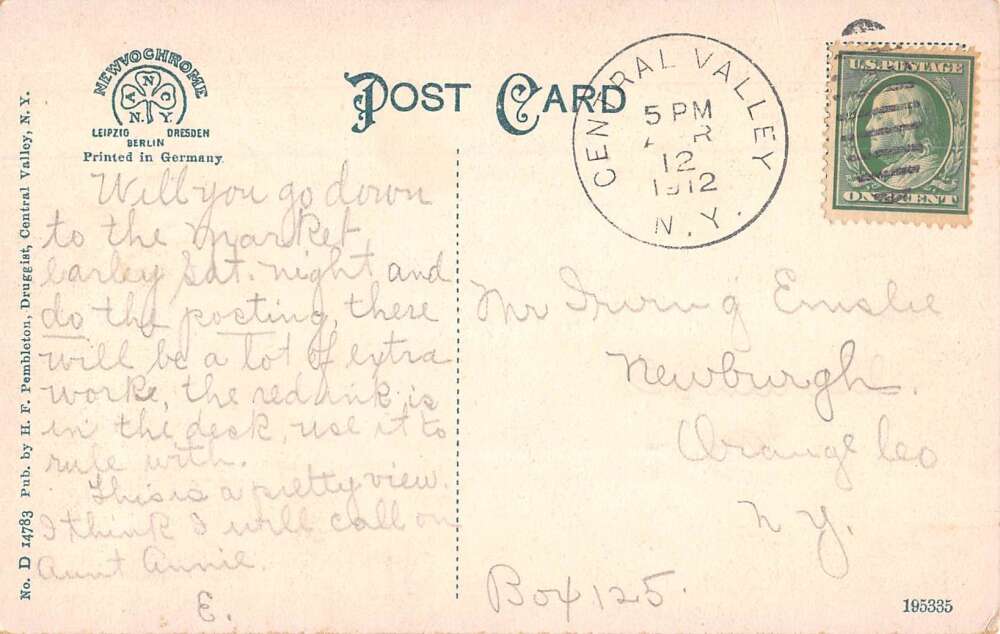 NEWVOCHROME
A N C
N.Y.
LEIPZIG DRESDEN
BERLIN
Printed in Germany.
POST CARD
CENTRAL VALLEY
5 PM
12
1912
N.Y.
U.S. POSTAGE
ONE CENT
No. D 14783 Pub. by H. F. Pembleton, Druggist, Central Valley, N. Y.
Will you go down
to the market,
earley Sat. night and
do the posting, there
will be a lot of extra
worke, the red ink is
in the desk, use it to
rule with.
This is a pretty view.
I think I will call on
Aunt Annie.
E.
Mr Irving Emslie
Newburgh.
Orange Co
N Y.
Box 125.
195335